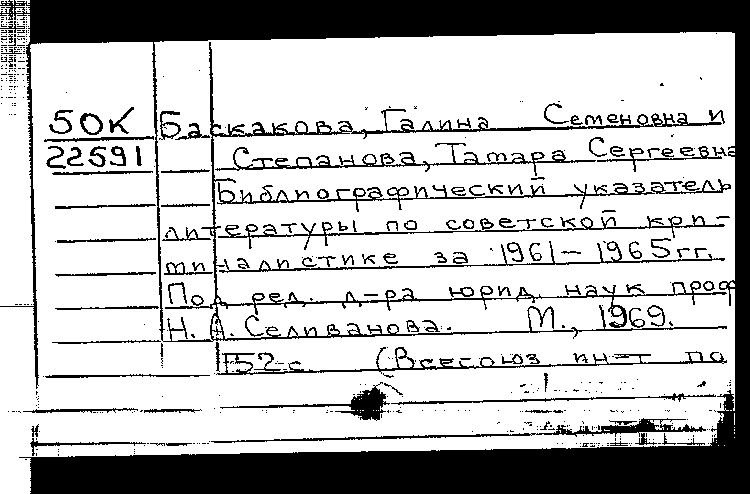 50К Баскакова, Галина Семеновна и
22591 Степанова, Тамара Сергеевна
Библиографический указатель
литературы по советской кри-
миналистике за 1961-1965гг.
Под ред. д-ра юрид. наук проф
Н. А. Селиванова. М., 1969.
152 с. (Всесоюз ин-т по